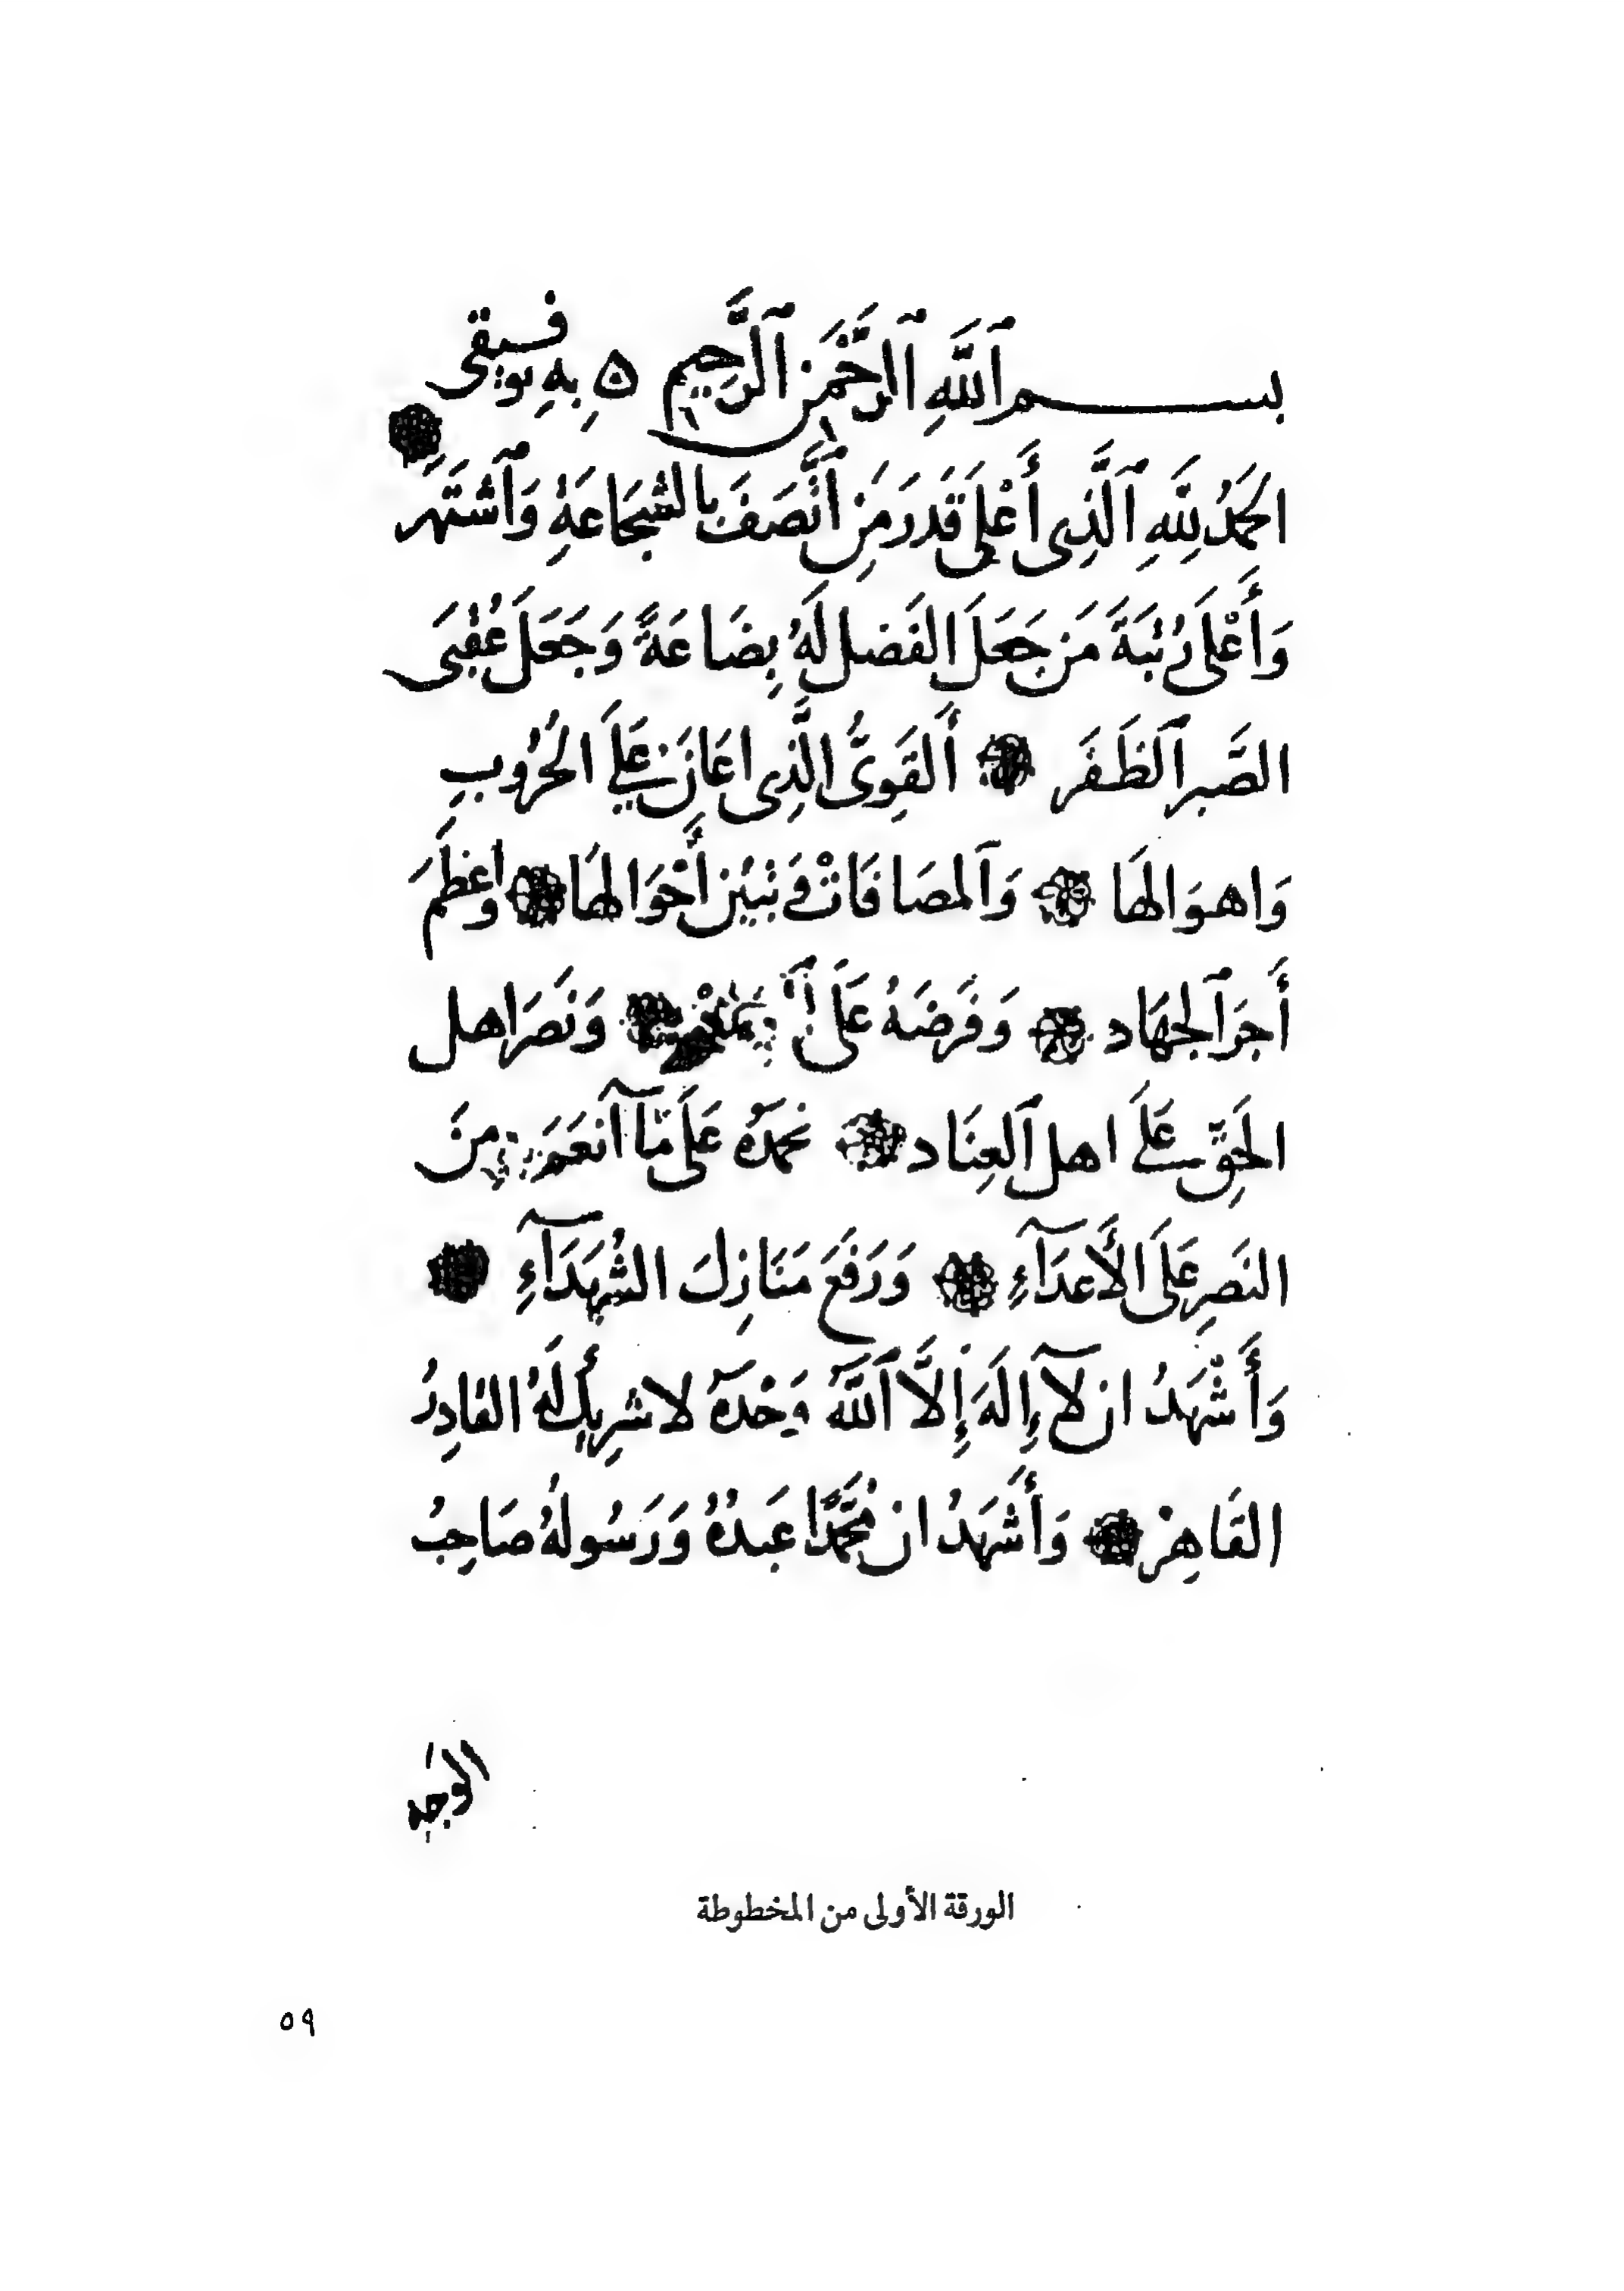 بسم ٱللَّهِ ٱلرَّحْمَنِ ٱلرَّحِيمِ ٥ وَبِهِ توفيقى
الحَمدُ لِلَّهِ ٱلَّذِى أَعْلَى قَدَرَ مَنِ ٱتَّصَفَ بِالشجَاعَةِ وَٱشتَهَرَ
وَأَعْلَى رُتبَةَ مَن جَعَلَ الفَضل لَهُ بِضَاعَةً وَجَعَلَ عُقبَى
الصَّبرِ ٱلظَفَر أَلقَوِىُّ الَّذِى اعَانَ عَلَى الحُرُوبِ
وَاهوَالهَا وَٱلمصَافَات وَ أَخوَالهَا وَاعظَمَ
أَجرَ ٱلجهَاد وَفَرَضَهُ عَلَى وَنَصَرَ اهل
الحَقِّ عَلَى اهل ٱلعِنَاد نحمَدُه عَلَى مَا أَنعَمَ مِنَ
النَصرِ عَلَى الأَعدَآءِ وَرَفَعَ مَنَازِلَ الشُهَدَآءِ
وَأَشْهَدُ ان لآ إِلَهَ إِلاَّ ٱللَّه وَحْدَهُ لا شرِيكَ لَهُ القَادِرُ
القَاهِرُ وَأَشهَدُ ان مُحَمَّدًا عَبدُهُ وَرَسُولهُ صَاحِبُ
الوَجهِ
الورقة الأولى من المخطوطة
٥٩